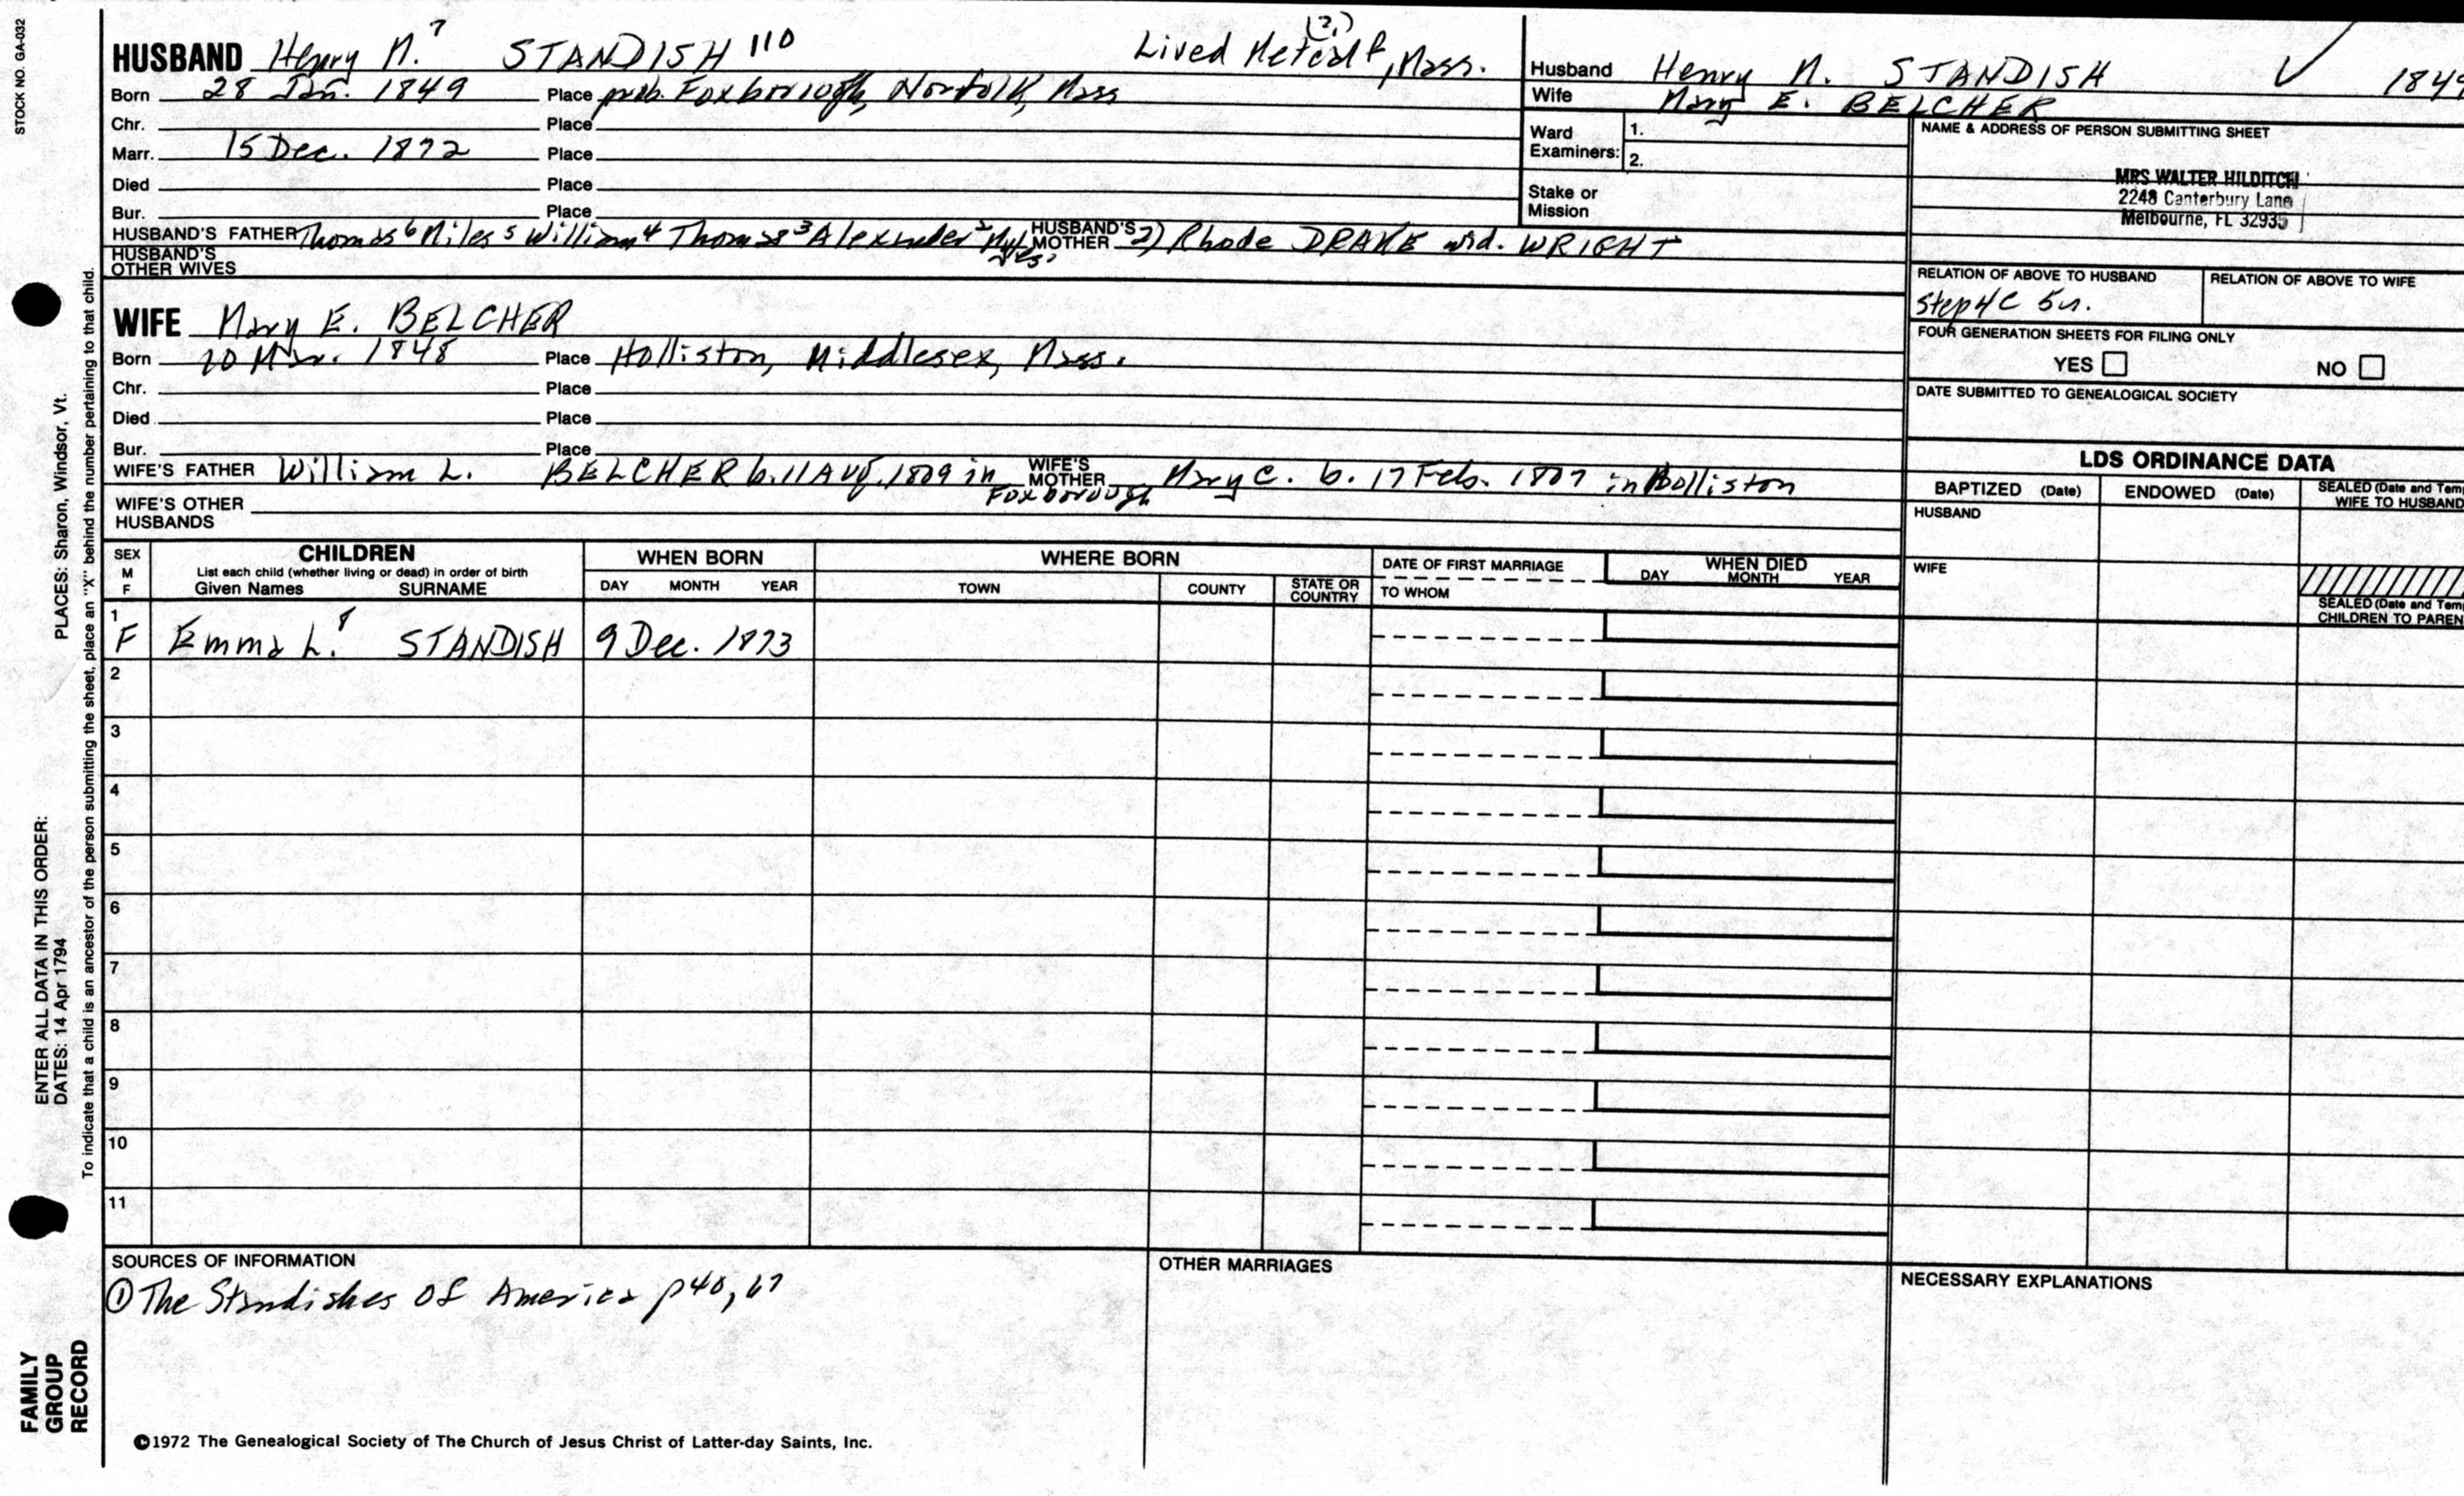 STOCK NO. GA-032
(2.)
HUSBAND Henry M.7 STANDISH 110 Lived Metcalf, Mass.
Born 28 Jan. 1849 Place prob. Foxborough, Norfolk, Mass
Chr. Place
Marr. 15 Dec. 1872 Place
Died Place
Bur. Place
HUSBAND'S FATHER Thomas 6 Miles 5 William 4 Thomas 3 Alexander 2 Myles1 HUSBAND'S MOTHER 2) Rhode DRAKE wid. WRIGHT
HUSBAND'S OTHER WIVES
WIFE Mary E. BELCHER
Born 20 Mar. 1848 Place Holliston, Middlesex, Mass.
Chr. Place
Died Place
Bur. Place
WIFE'S FATHER William L. BELCHER b. 11 Aug. 1809 in Foxborough WIFE'S MOTHER Mary C. b. 17 Feb. 1807 in Holliston
WIFE'S OTHER HUSBANDS
Husband Henry M. STANDISH 1849
Wife Mary E. BELCHER
Ward Examiners: 1.
2.
Stake or Mission
NAME & ADDRESS OF PERSON SUBMITTING SHEET
MRS WALTER HILDITCH
2248 Canterbury Lane
Melbourne, FL 32935
RELATION OF ABOVE TO HUSBAND RELATION OF ABOVE TO WIFE
Step 4C 5r.
FOUR GENERATION SHEETS FOR FILING ONLY
YES NO
DATE SUBMITTED TO GENEALOGICAL SOCIETY
LDS ORDINANCE DATA
BAPTIZED (Date) ENDOWED (Date) SEALED (Date and Temp
WIFE TO HUSBAND
HUSBAND
WIFE
SEALED (Date and Temp
CHILDREN TO PAREN
SEX M F CHILDREN WHEN BORN WHERE BORN DATE OF FIRST MARRIAGE WHEN DIED
List each child (whether living or dead) in order of birth
Given Names SURNAME DAY MONTH YEAR TOWN COUNTY STATE OR COUNTRY TO WHOM DAY MONTH YEAR
1
F Emma L.8 STANDISH 9 Dec. 1873
2
3
4
5
6
7
8
9
10
11
SOURCES OF INFORMATION OTHER MARRIAGES NECESSARY EXPLANATIONS
① The Standishes Of America p 40, 67
©1972 The Genealogical Society of The Church of Jesus Christ of Latter-day Saints, Inc.
ENTER ALL DATA IN THIS ORDER:
DATES: 14 Apr 1794 PLACES: Sharon, Windsor, Vt.
To indicate that a child is an ancestor of the person submitting the sheet, place an "X" behind the number pertaining to that child.
FAMILY
GROUP
RECORD